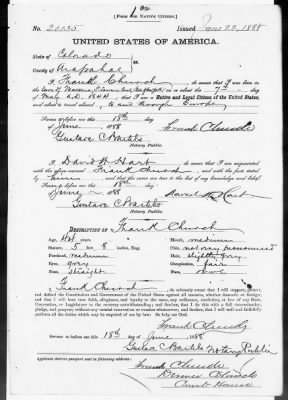 [FORM FOR NATIVE CITIZEN.]
No. 20135 Issued June 22, 1888
UNITED STATES OF AMERICA.
State of Colorado
County of Arapahoe
I, Frank Church, do swear that I was born in
the town of on or about the 7th day
of May, A.D. 1844; that I am a Native and Loyal Citizen of the United States,
and about to travel abroad, to and through Europe
Sworn to before me this 18th day
of June 1888 Frank Church
Gustave C Bartels
Notary Public.
I, David H Hart, do swear that I am acquainted
with the above-named Frank Church, and with the facts stated
by him, and that the same are true to the best of my knowledge and belief.
Sworn to before me this 18th day
of June 1888 David H Hart
Gustave C Bartels
Notary Public.
DESCRIPTION OF Frank Church
Age: 44 years Mouth: medium
Stature: 5 feet 8 inches, Eng. Chin: not very pronounced
Forehead: medium Hair: slightly gray
Eyes: gray Complexion: fair
Nose: straight Face:
I, Frank Church, do solemnly swear that I will support, protect
and defend the Constitution and Government of the United States against all enemies, whether domestic or foreign;
and that I will bear true faith, allegiance, and loyalty to the same, any ordinance, resolution, or law of any State,
Convention, or Legislature to the contrary notwithstanding; and further, that I do this with a full determination,
pledge, and purpose, without any mental reservation or evasion whatsoever; and further, that I will well and faithfully
perform all the duties which may be required of me by law: So help me God.
Frank Church
Sworn to before me this 18th day of June 1888
Gustave C Bartels Notary Public
Applicant desires passport sent to following address:
Frank Church
Denver Colorado
Court House